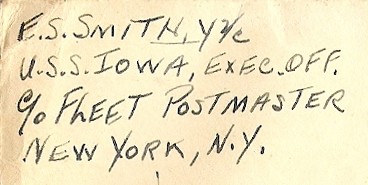 E.S. SMITH, Y2/c
U.S.S. IOWA, EXEC. OFF.
c/o FLEET POSTMASTER
NEW YORK, N.Y.